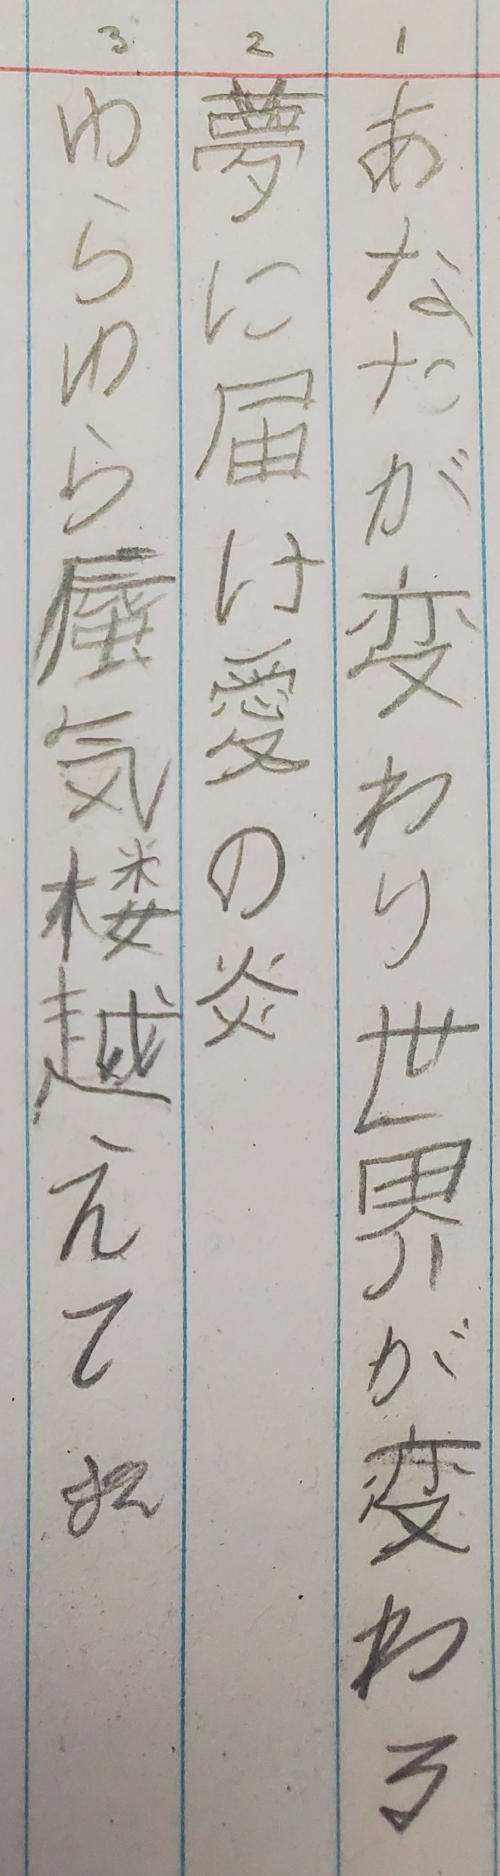 1 あなたが変わり世界が変わる
2 夢に届け愛の炎
3 ゆらゆら蜃気楼越えて